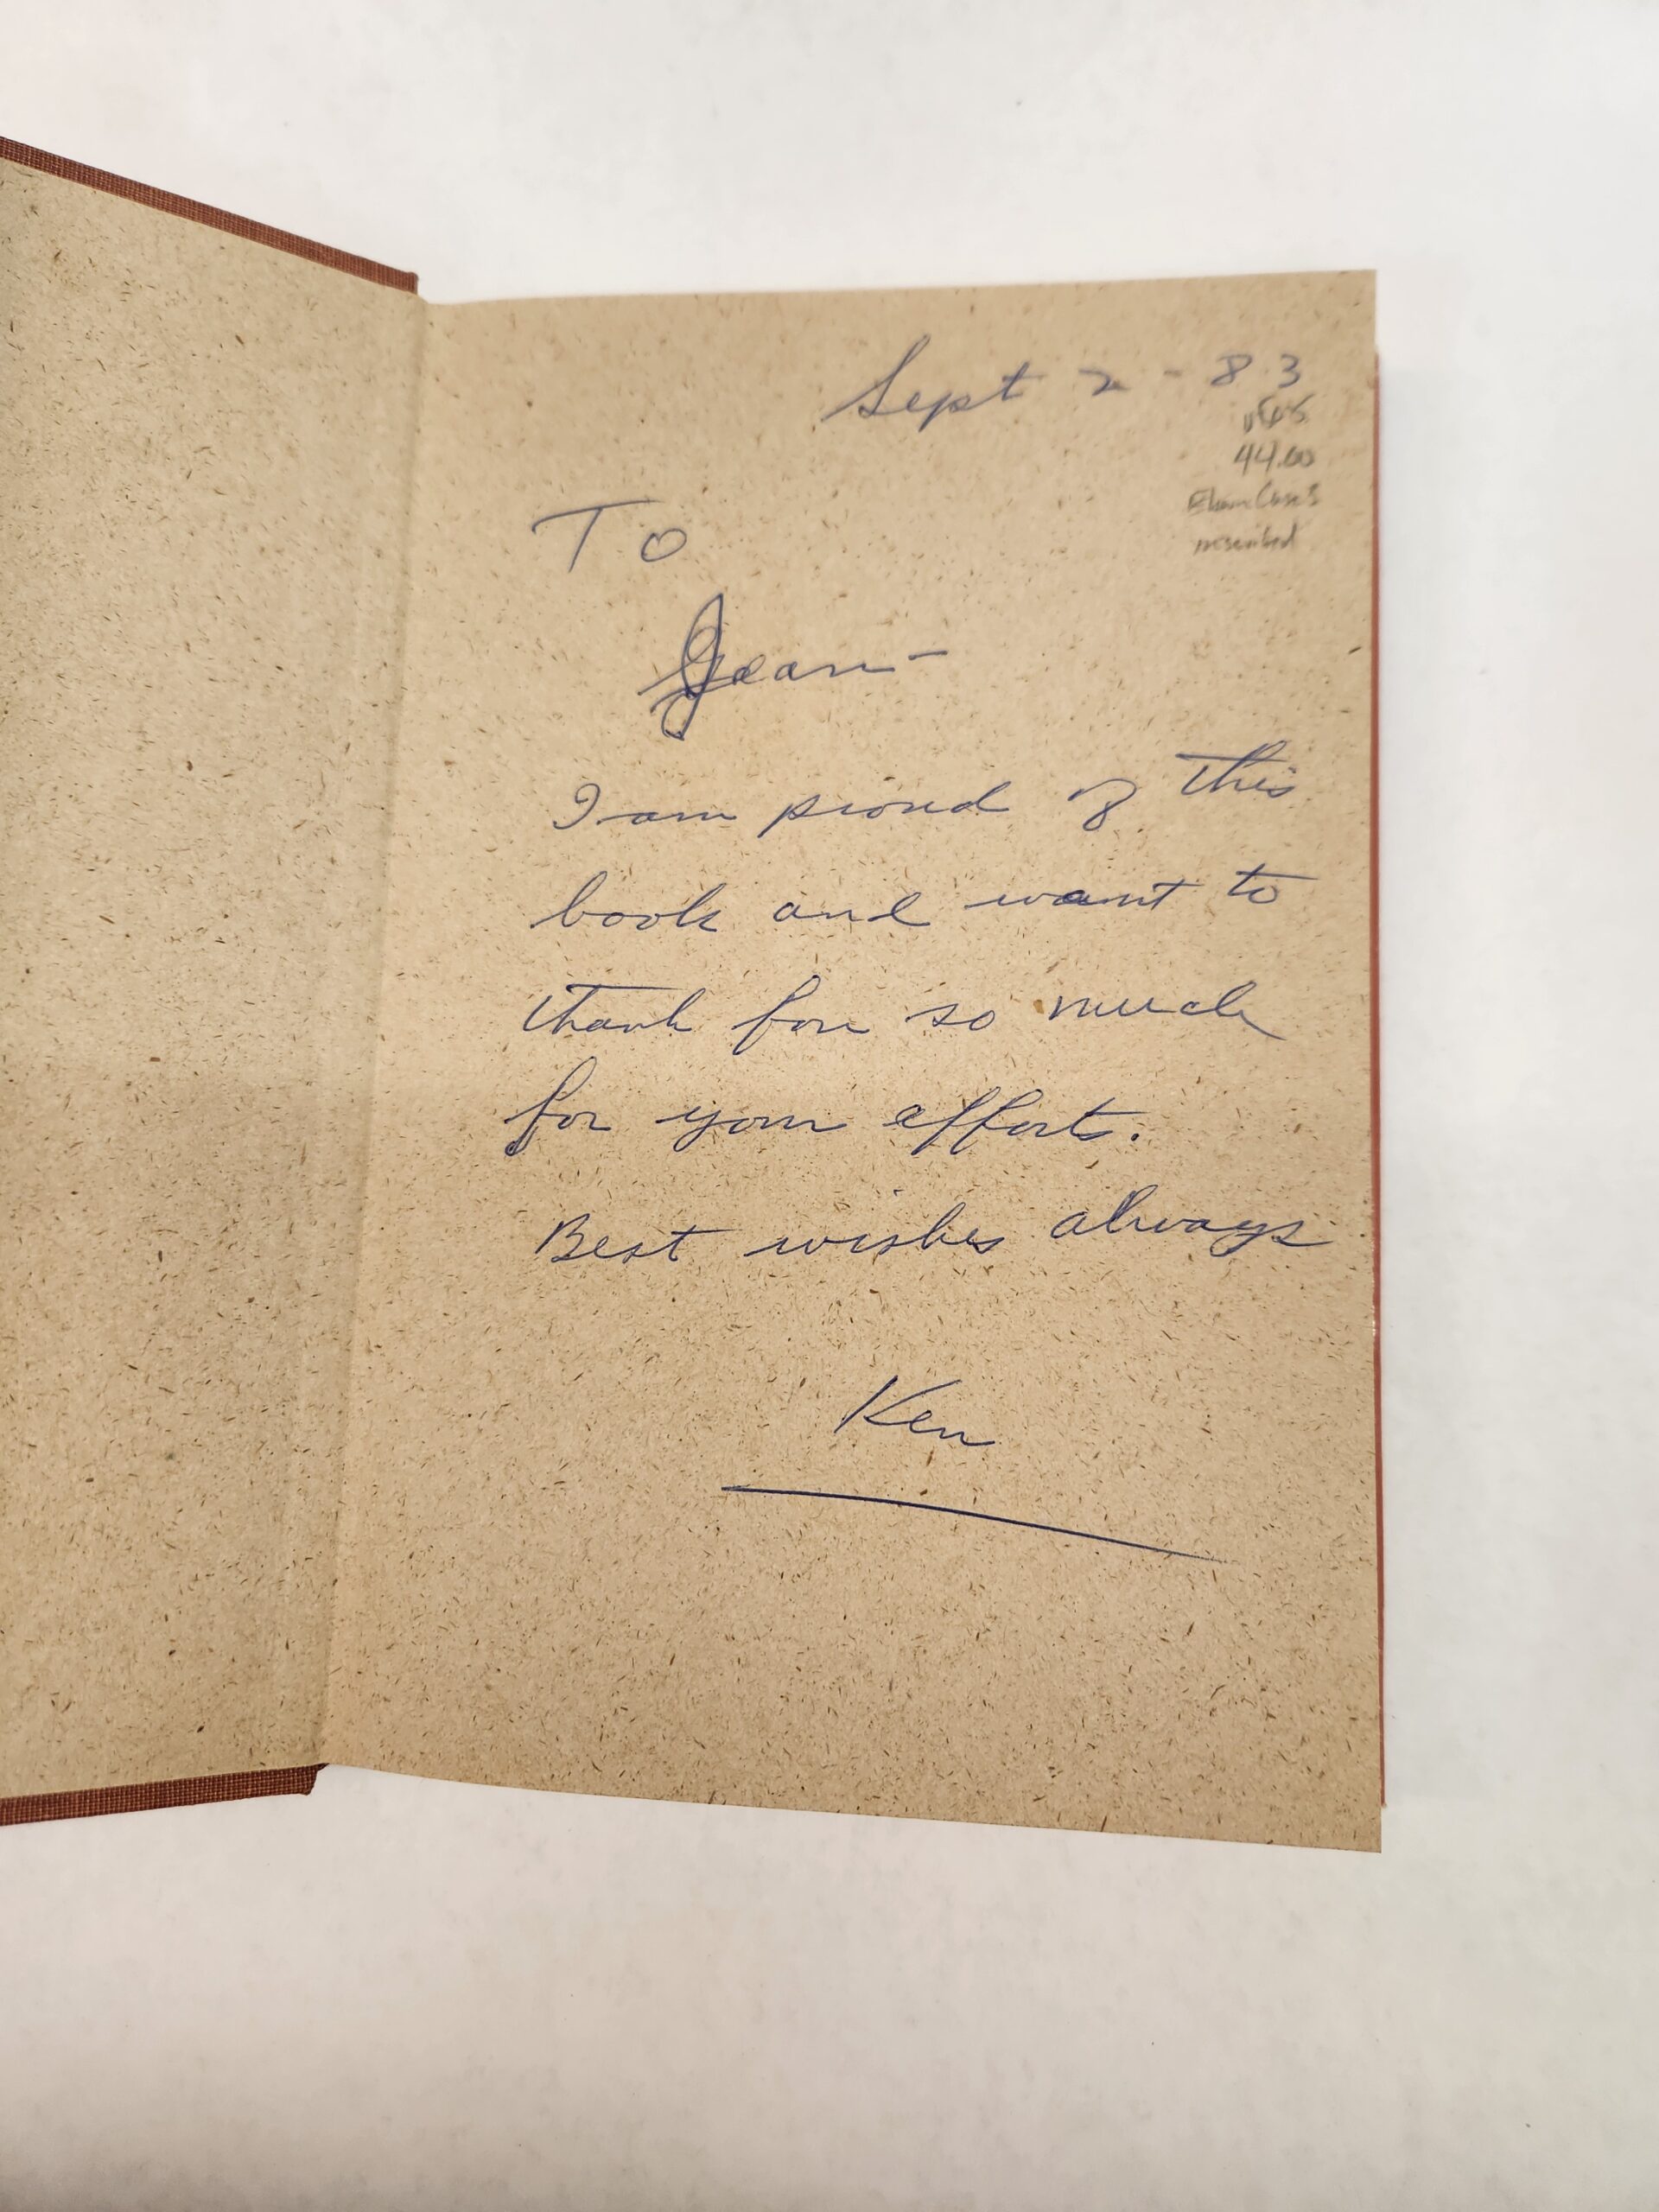 Sept 2 - 83
44.00
inscribed
To
Jean -
I am proud of this
book and want to
thank for so much
for your efforts.
Best wishes always
Ken